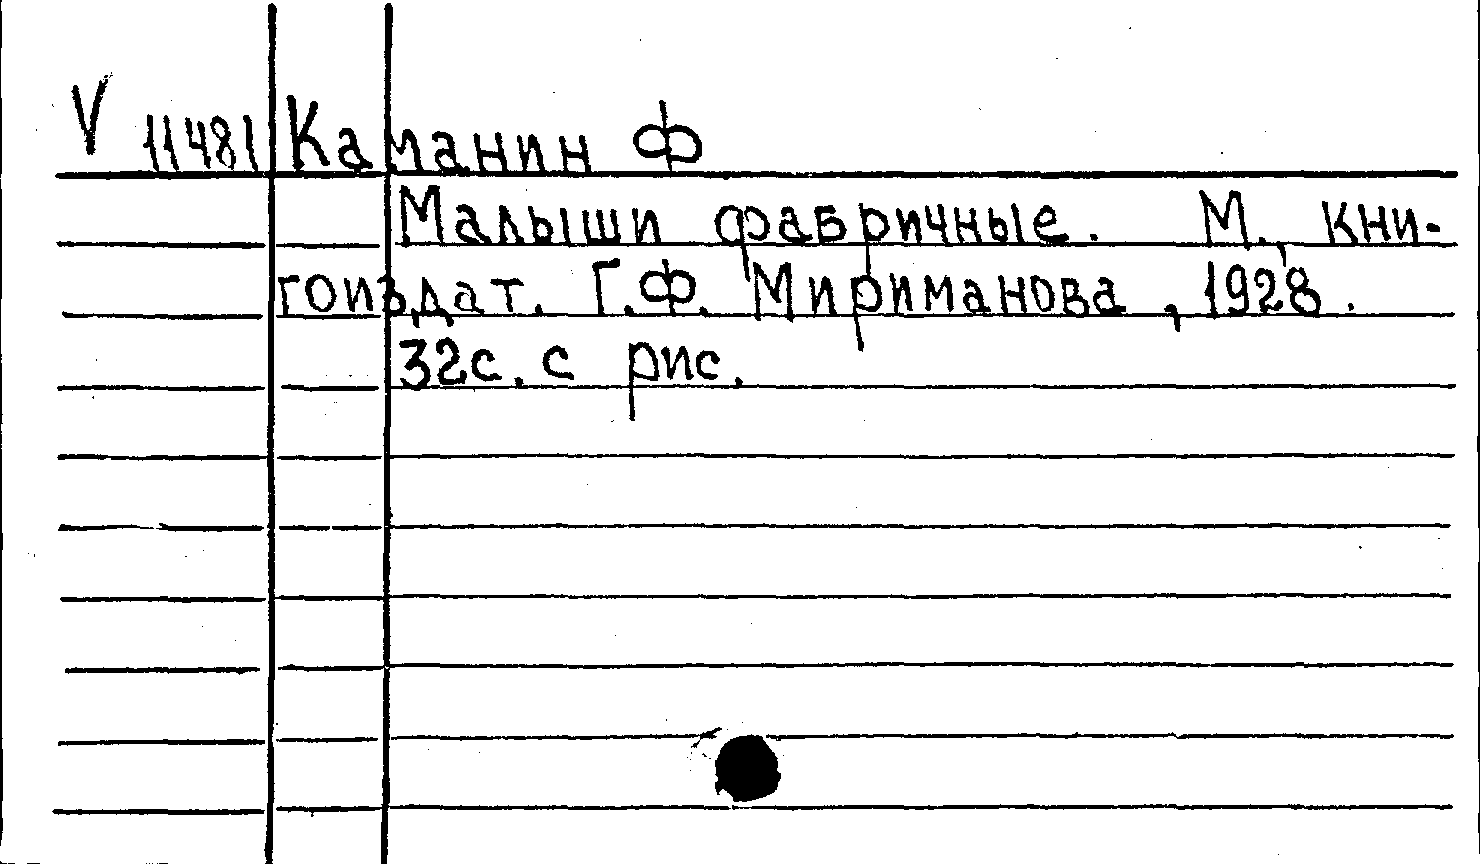 V 11481 Каманин Ф
Малыши фабричные. М., кни-
гоиздат. Г.Ф. Мириманова, 1928.
32с. с рис.